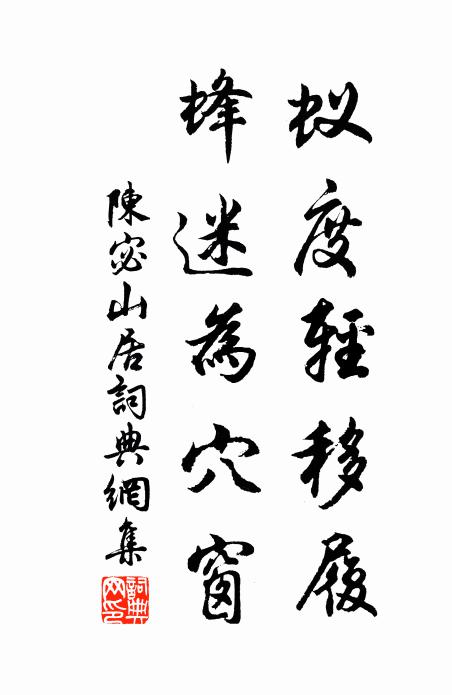 蚁度輕移履
蜂迷為穴窗
陳宓山居詞典網集
詞典网印